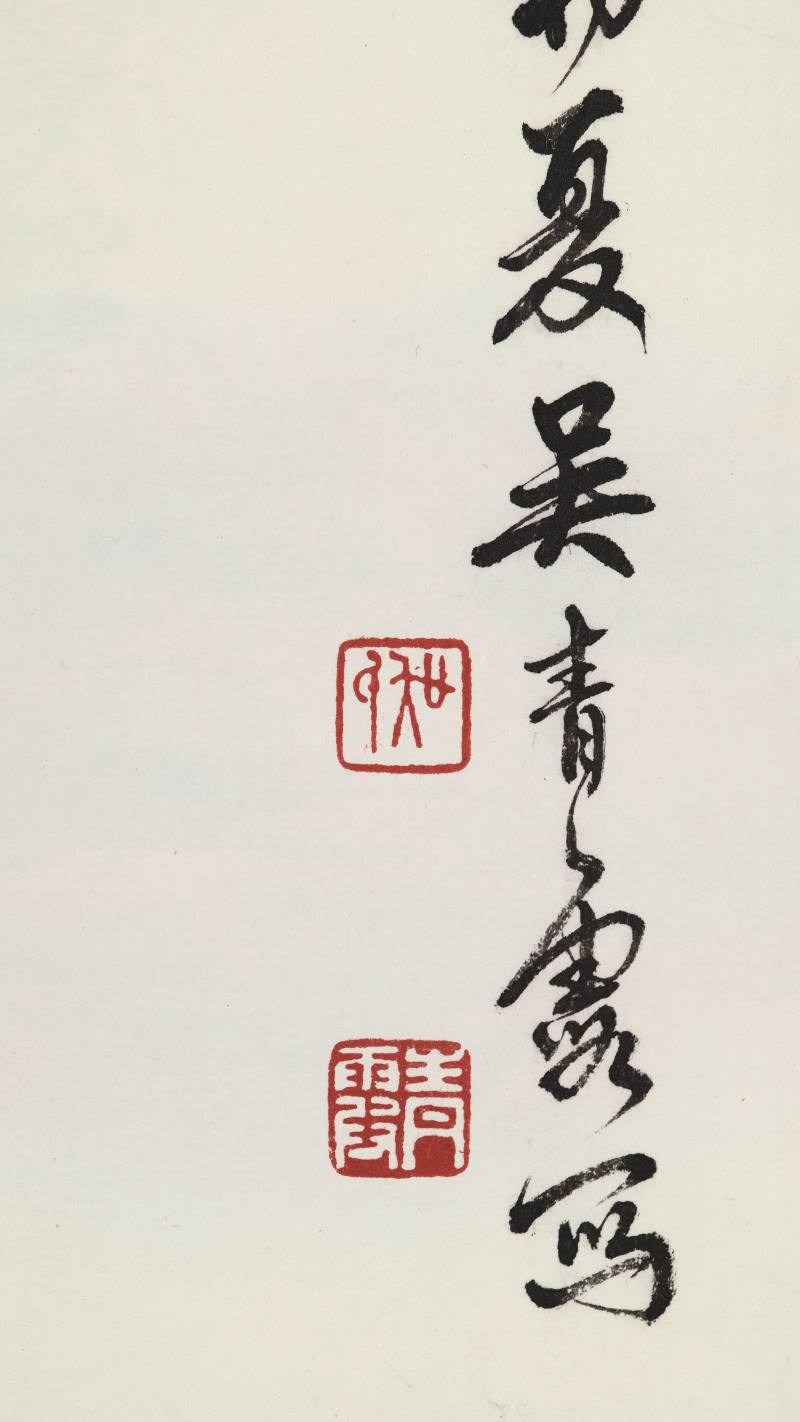 初夏吴青霞寫
青霞